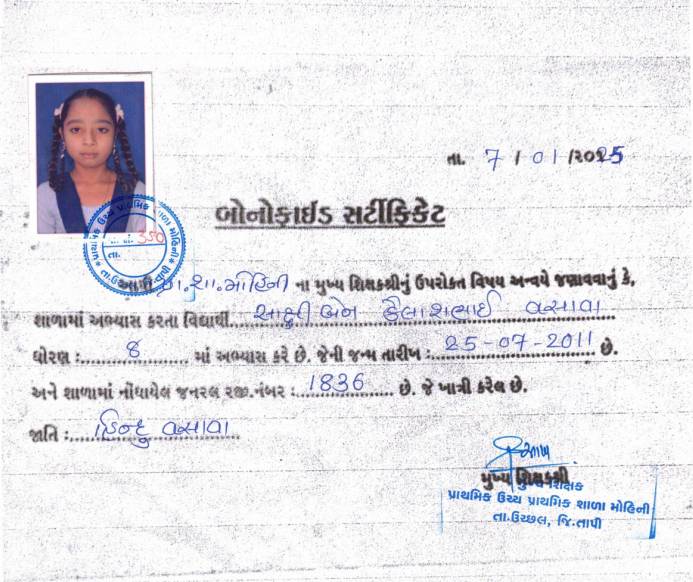 તા. 7 / 01 /2025
બોનોફાઈડ સર્ટીફિકેટ
પ્રા.શા.મોહિની ના મુખ્ય શિક્ષકશ્રીનું ઉપરોક્ત વિષય અન્વયે જણાવવાનું કે,
શાળામાં અભ્યાસ કરતા વિદ્યાર્થી બેન કૈલાશભાઈ વસાવા
ધોરણ :............ 8 ............ માં અભ્યાસ કરે છે. જેની જન્મ તારીખ : 25-07-2011 છે.
અને શાળામાં નોંધાયેલ જનરલ રજી.નંબર : 1836 છે. જે ખાત્રી કરેલ છે.
જાતિ : હિન્દુ વસાવા
મુખ્ય શિક્ષકશ્રી
મુખ્ય શિક્ષક
પ્રાથમિક ઉચ્ચ પ્રાથમિક શાળા મોહિની
તા.ઉચ્છલ, જિ.તાપી